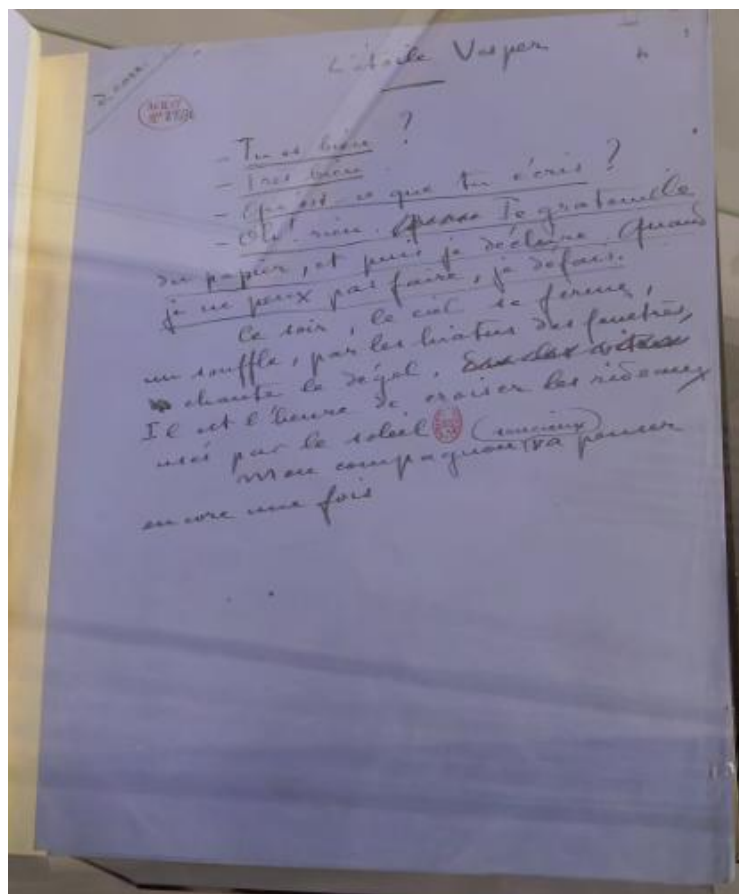 L'étoile Vesper
- Tu es bien ?
- Très bien
- Qu'est-ce que tu écris ?
- Oh! rien. Je gratouille
du papier, et puis je déchire. Quand
je ne peux pas faire, je défais.
Ce soir, le ciel se ferme,
un souffle, par les hiatus des fenêtres,
chante le dégel.
Il est l'heure de croiser les rideaux
usés par le soleil
Mon compagnon (soucieux) va penser
encore une fois